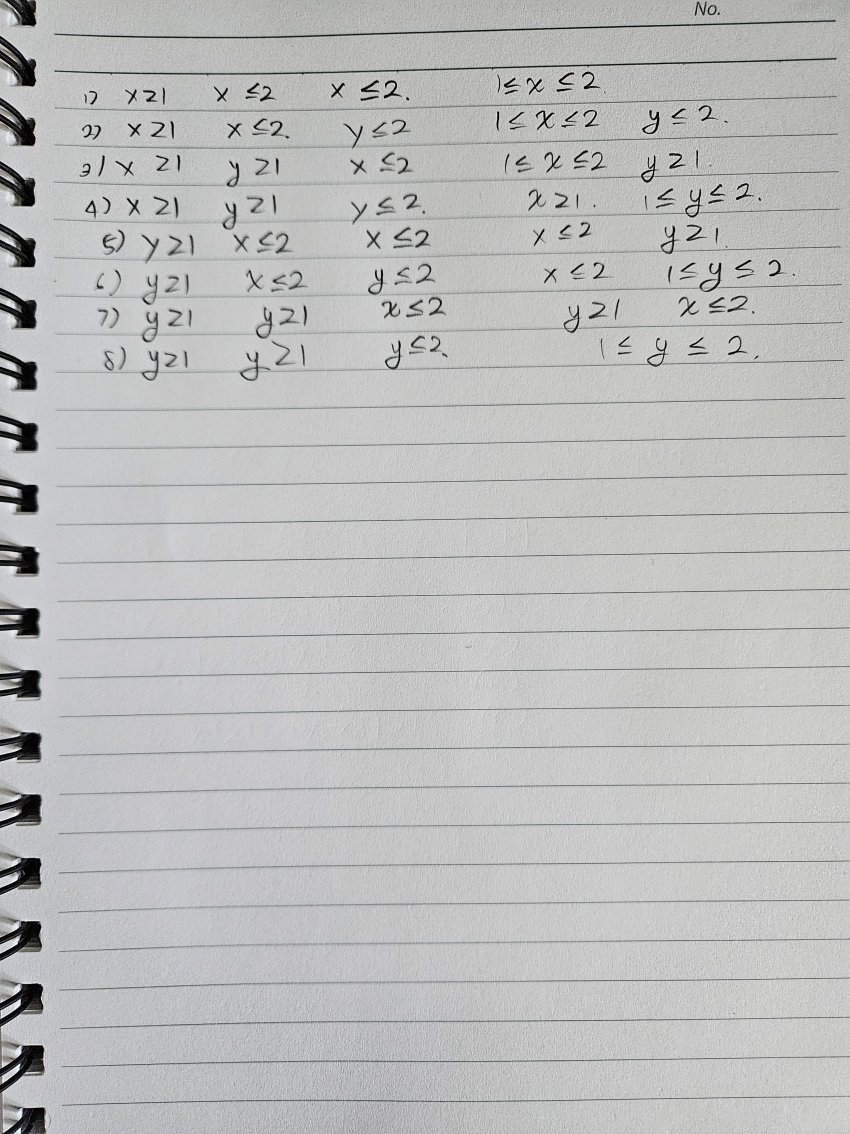 No.
1) x≥1 x≤2 x≤2. 1≤x≤2.
2) x≥1 x≤2. y≤2 1≤x≤2 y≤2.
3) x≥1 y≥1 x≤2 1≤x≤2 y≥1.
4) x≥1 y≥1 y≤2. x≥1. 1≤y≤2.
5) y≥1 x≤2 x≤2 x≤2 y≥1.
6) y≥1 x≤2 y≤2 x≤2 1≤y≤2.
7) y≥1 y≥1 x≤2 y≥1 x≤2.
8) y≥1 y≥1 y≤2. 1≤y≤2.